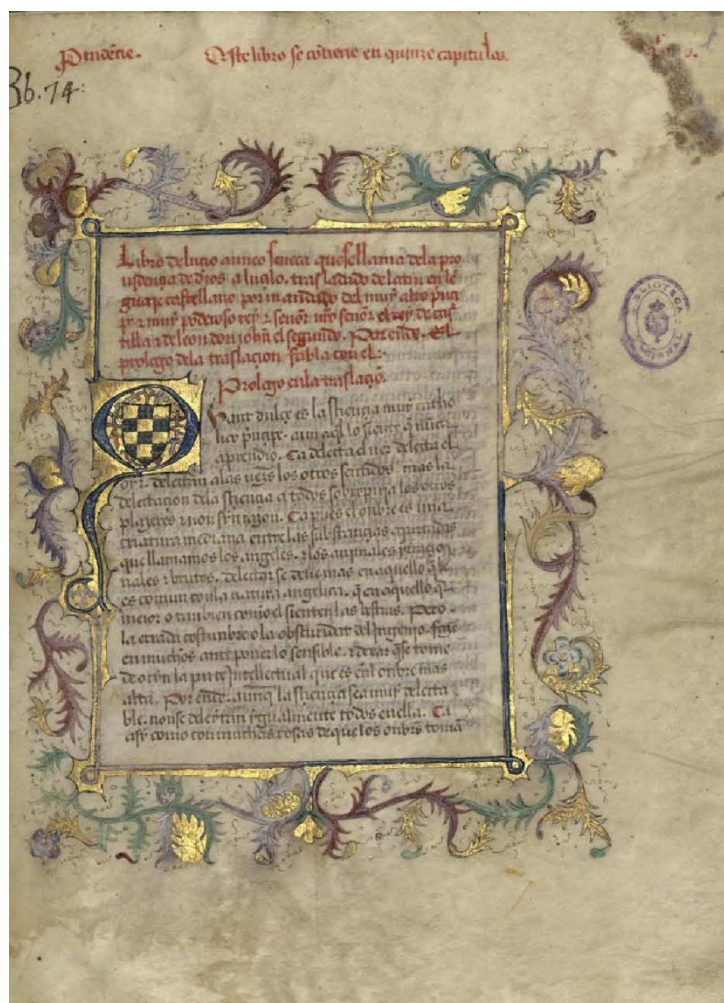 Prudẽcie. Este libro se cõtiene en quinze capitulos.
Bb. 74:
Libro de lucio anneo seneca que se llama dela pro
uidençia de dios a luçilo. trasladado de latin en lẽ
guaje castellano por mandado del muy alto prĩçi
pe & muy poderoso rey & señor nr̃o señor el rey de cas
tilla & de leon don johñ el segundo. Por ende. El
prologo dela traslaçion fabla con el:
Prologo enla traslaçiõ.
Quant dulçe es la sçiençia muy catho
lico prĩçipe. aun aq̃l lo siente q̃ nũca
aprendio. Ca delecta el veer delecta el
oyr. delectan alas uezes los otros sentidos. mas la
delectaçion dela sçiençia a todos sobrepuja los otros
plazeres & non syn razon. Ca pues el onbre es una
criatura mediana entre las substançias apartadas
que llamamos los angeles. & los animales
& brutos. delectar se deue mas en aquello q̃ le
es comun con la natura angelica. q̃ en aquello q̃
o tan bien como el sienten las bestias. Pero
la costunbre o la del ingenio. faze
en muchos ante poner lo sensible. & dexar q̃ se tome
de orĩn la parte intellectual que es enl onbre mas
alta. Por ende. aunq̃ la sçiençia sea muy delecta
ble. no se delectan ygualmente todos en ella. Ca
asy como con muchas cosas de que los onbres tomã
BIBLIOTECA NACIONAL